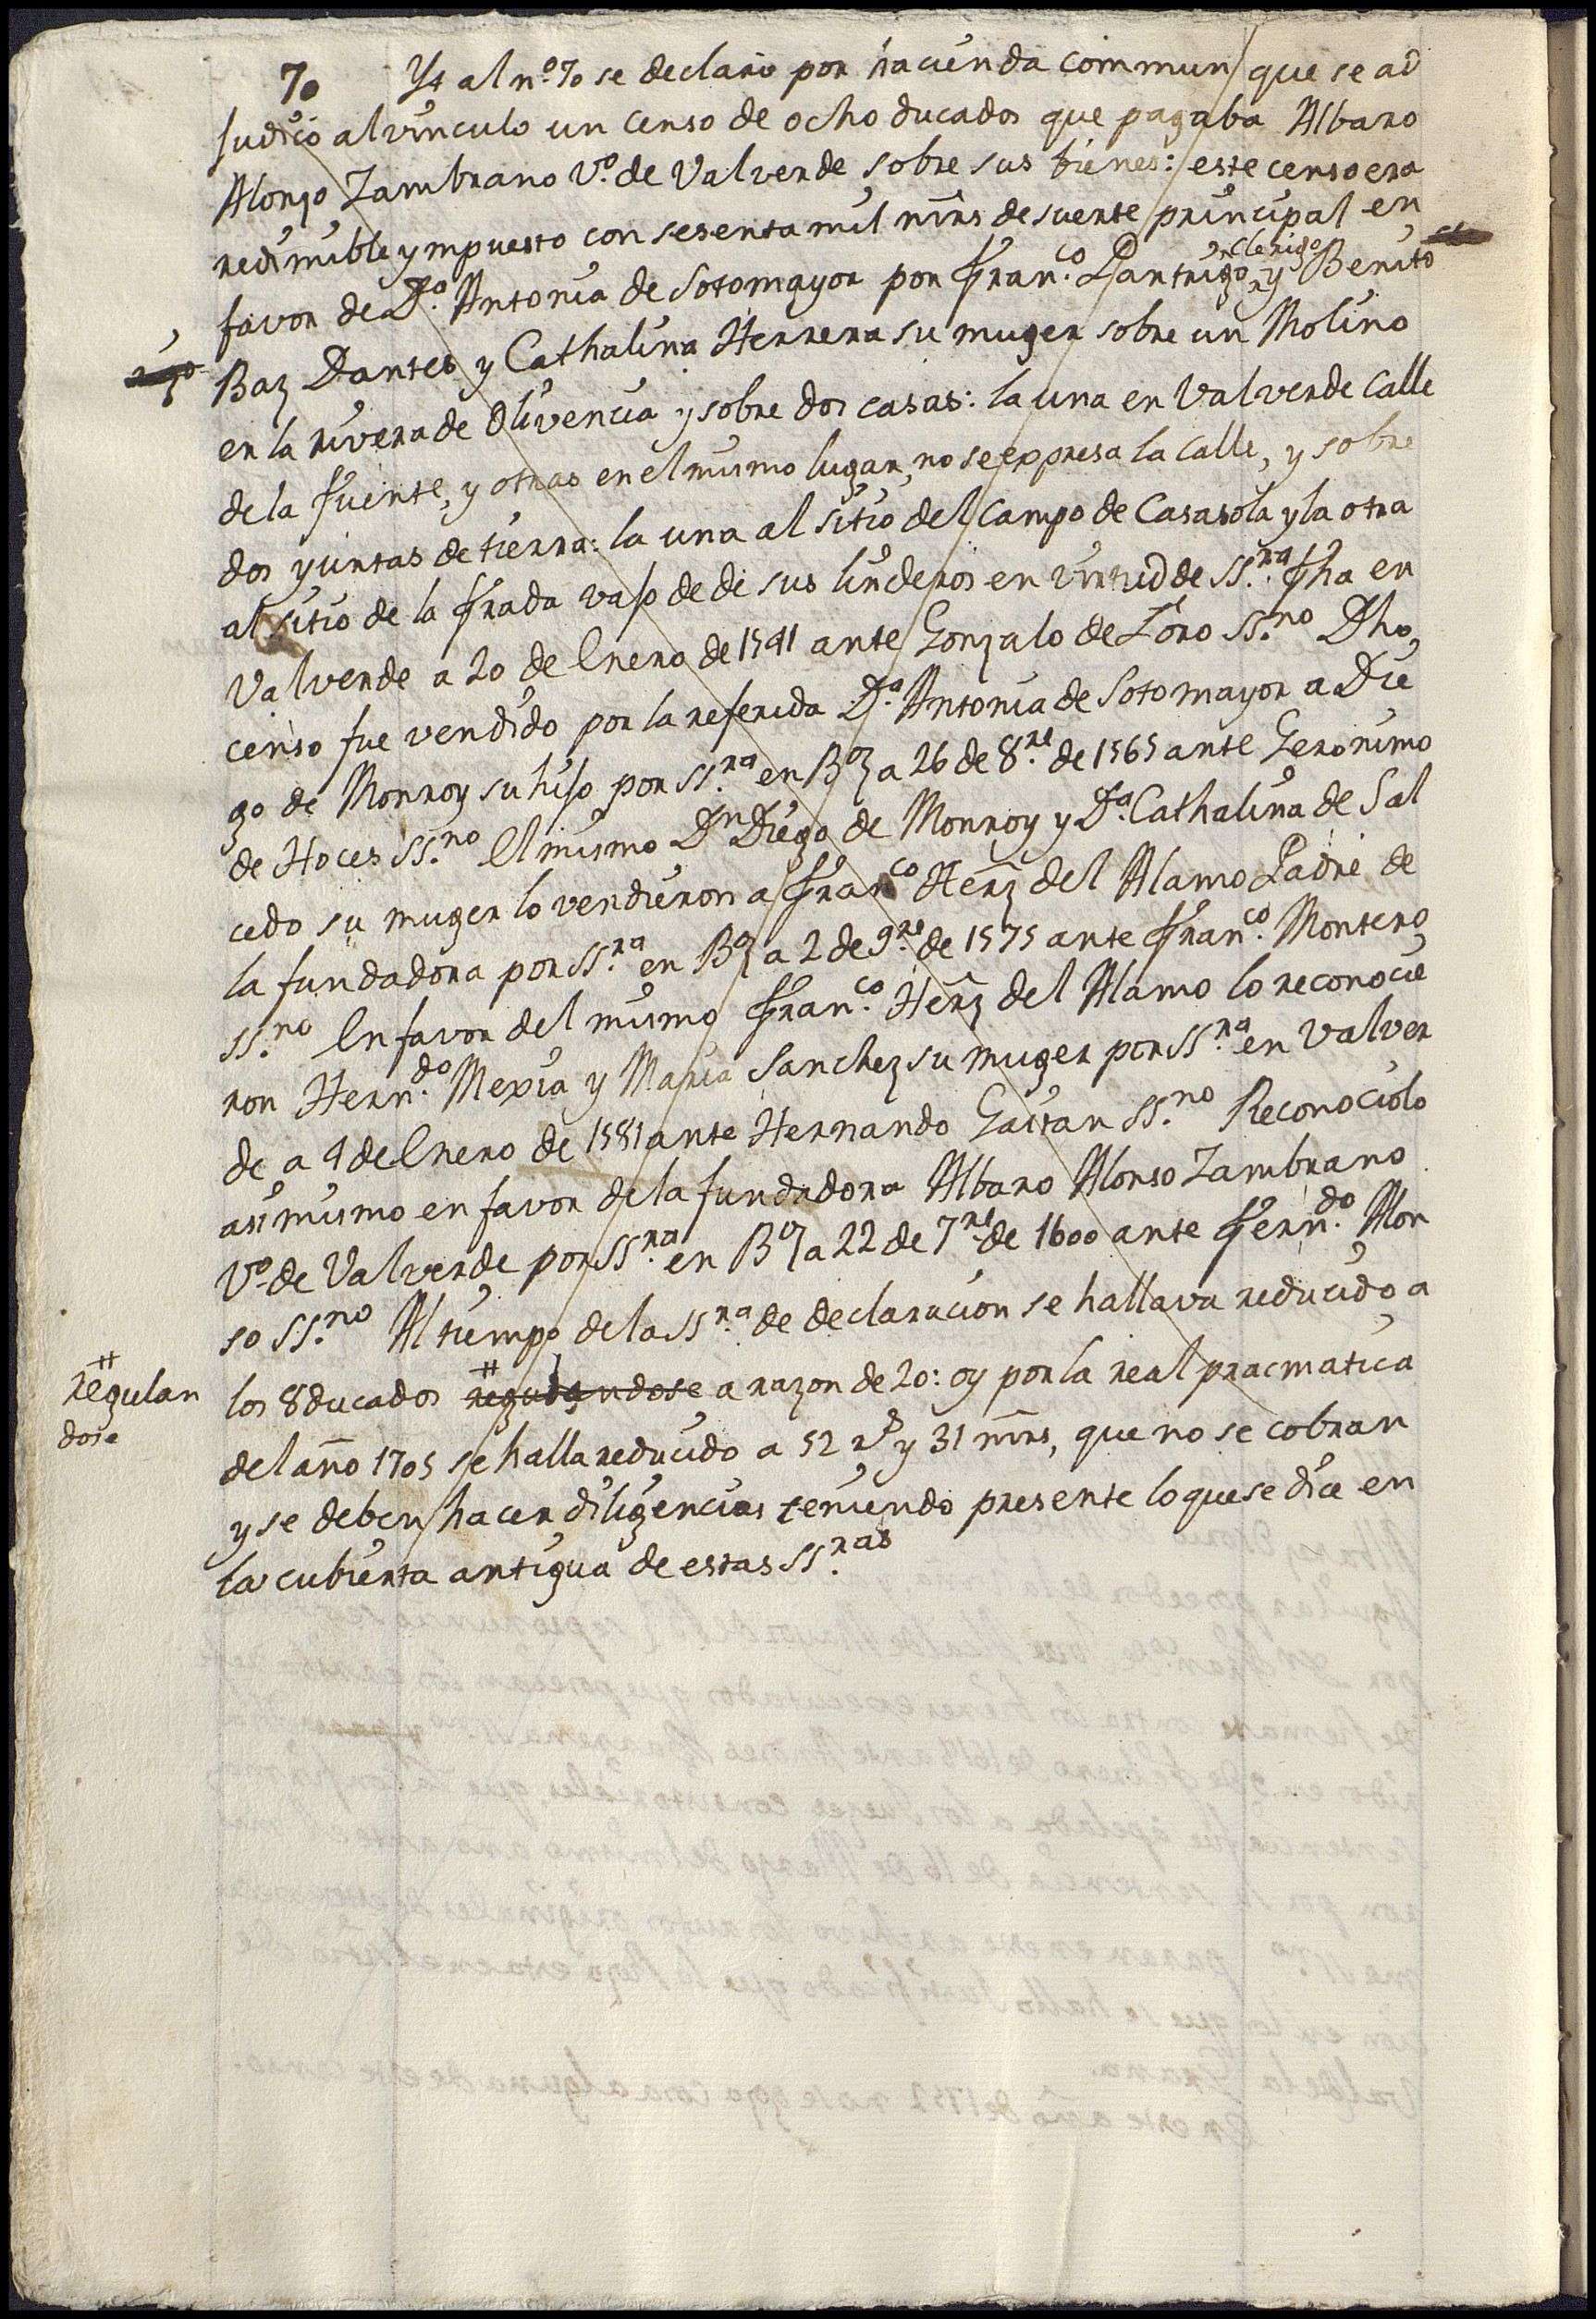 70 Yt al nº 70 se declaró por hacienda commun que se ad
judico al vinculo un censo de ocho ducados que pagaba Albaro
Alonso Zambrano Vº de Valverde sobre sus bienes: este censo era
redimible ympuesto con sesenta mil mrs de suerte principal en
favor de Dª Antonia de Sotomayor por Franco Pantrigo clerigo y Benito
Baz Dantes y Cathalina Herrera su muger sobre un Molino
en la rivera de Olivencia y sobre dos casas: la una en Valverde calle
de la Fuente, y otras en el mismo lugar, no se expresa la calle, y sobre
dos yuntas de tierra: la una al sitio del campo de Casasola y la otra
al sitio de la Frada vajo de di sus linderos en virtud de SS.ra fha en
Valverde a 20 de Enero de 1541 ante Gonzalo de Toro SS.no Dho
censo fue vendido por la referida Dª Antonia de Sotomayor a Die
go de Monroy su hijo por SS.ra en Bz a 26 de 8.re de 1565 ante Geronimo
de Hoces SS.no El mismo Dn Diego de Monroy y Dª Cathalina de Sal
cedo su muger lo vendieron a Franco Hernz del Alamo Padre de
la fundadora por SS.ra en Bz a 2 de 9.re de 1575 ante Fran.co Montero
SS.no En favor del mismo Fran.co Hernz del Alamo lo reconocie
ron Hern.do Mexia y Maria Sanchez su muger por SS.ra en Valver
de a 4 de Enero de 1581 ante Hernando Gaitan SS.no Reconociolo
asimismo en favor de la fundadora Albaro Alonso Zambrano
Vº de Valverde por SS.ra en Bz a 22 de 7.re de 1600 ante Fern.do Alon
so SS.no Al tiempo de la SS.ra de declaracion se hallava reducido a
los 8 ducados # regulandose a razon de 20: oy por la real pracmatica
# regulan
dose
del año 1705 se halla reducido a 52 rs y 31 mrs, que no se cobran
y se deben hacer diligencias teniendo presente lo que se dice en
la cubierta antigua de estas SS.ras